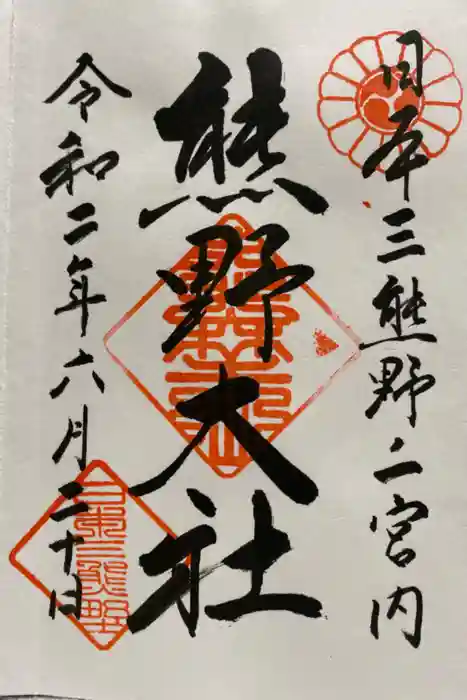 日本三熊野二宮内
熊野大社
令和二年六月二十日